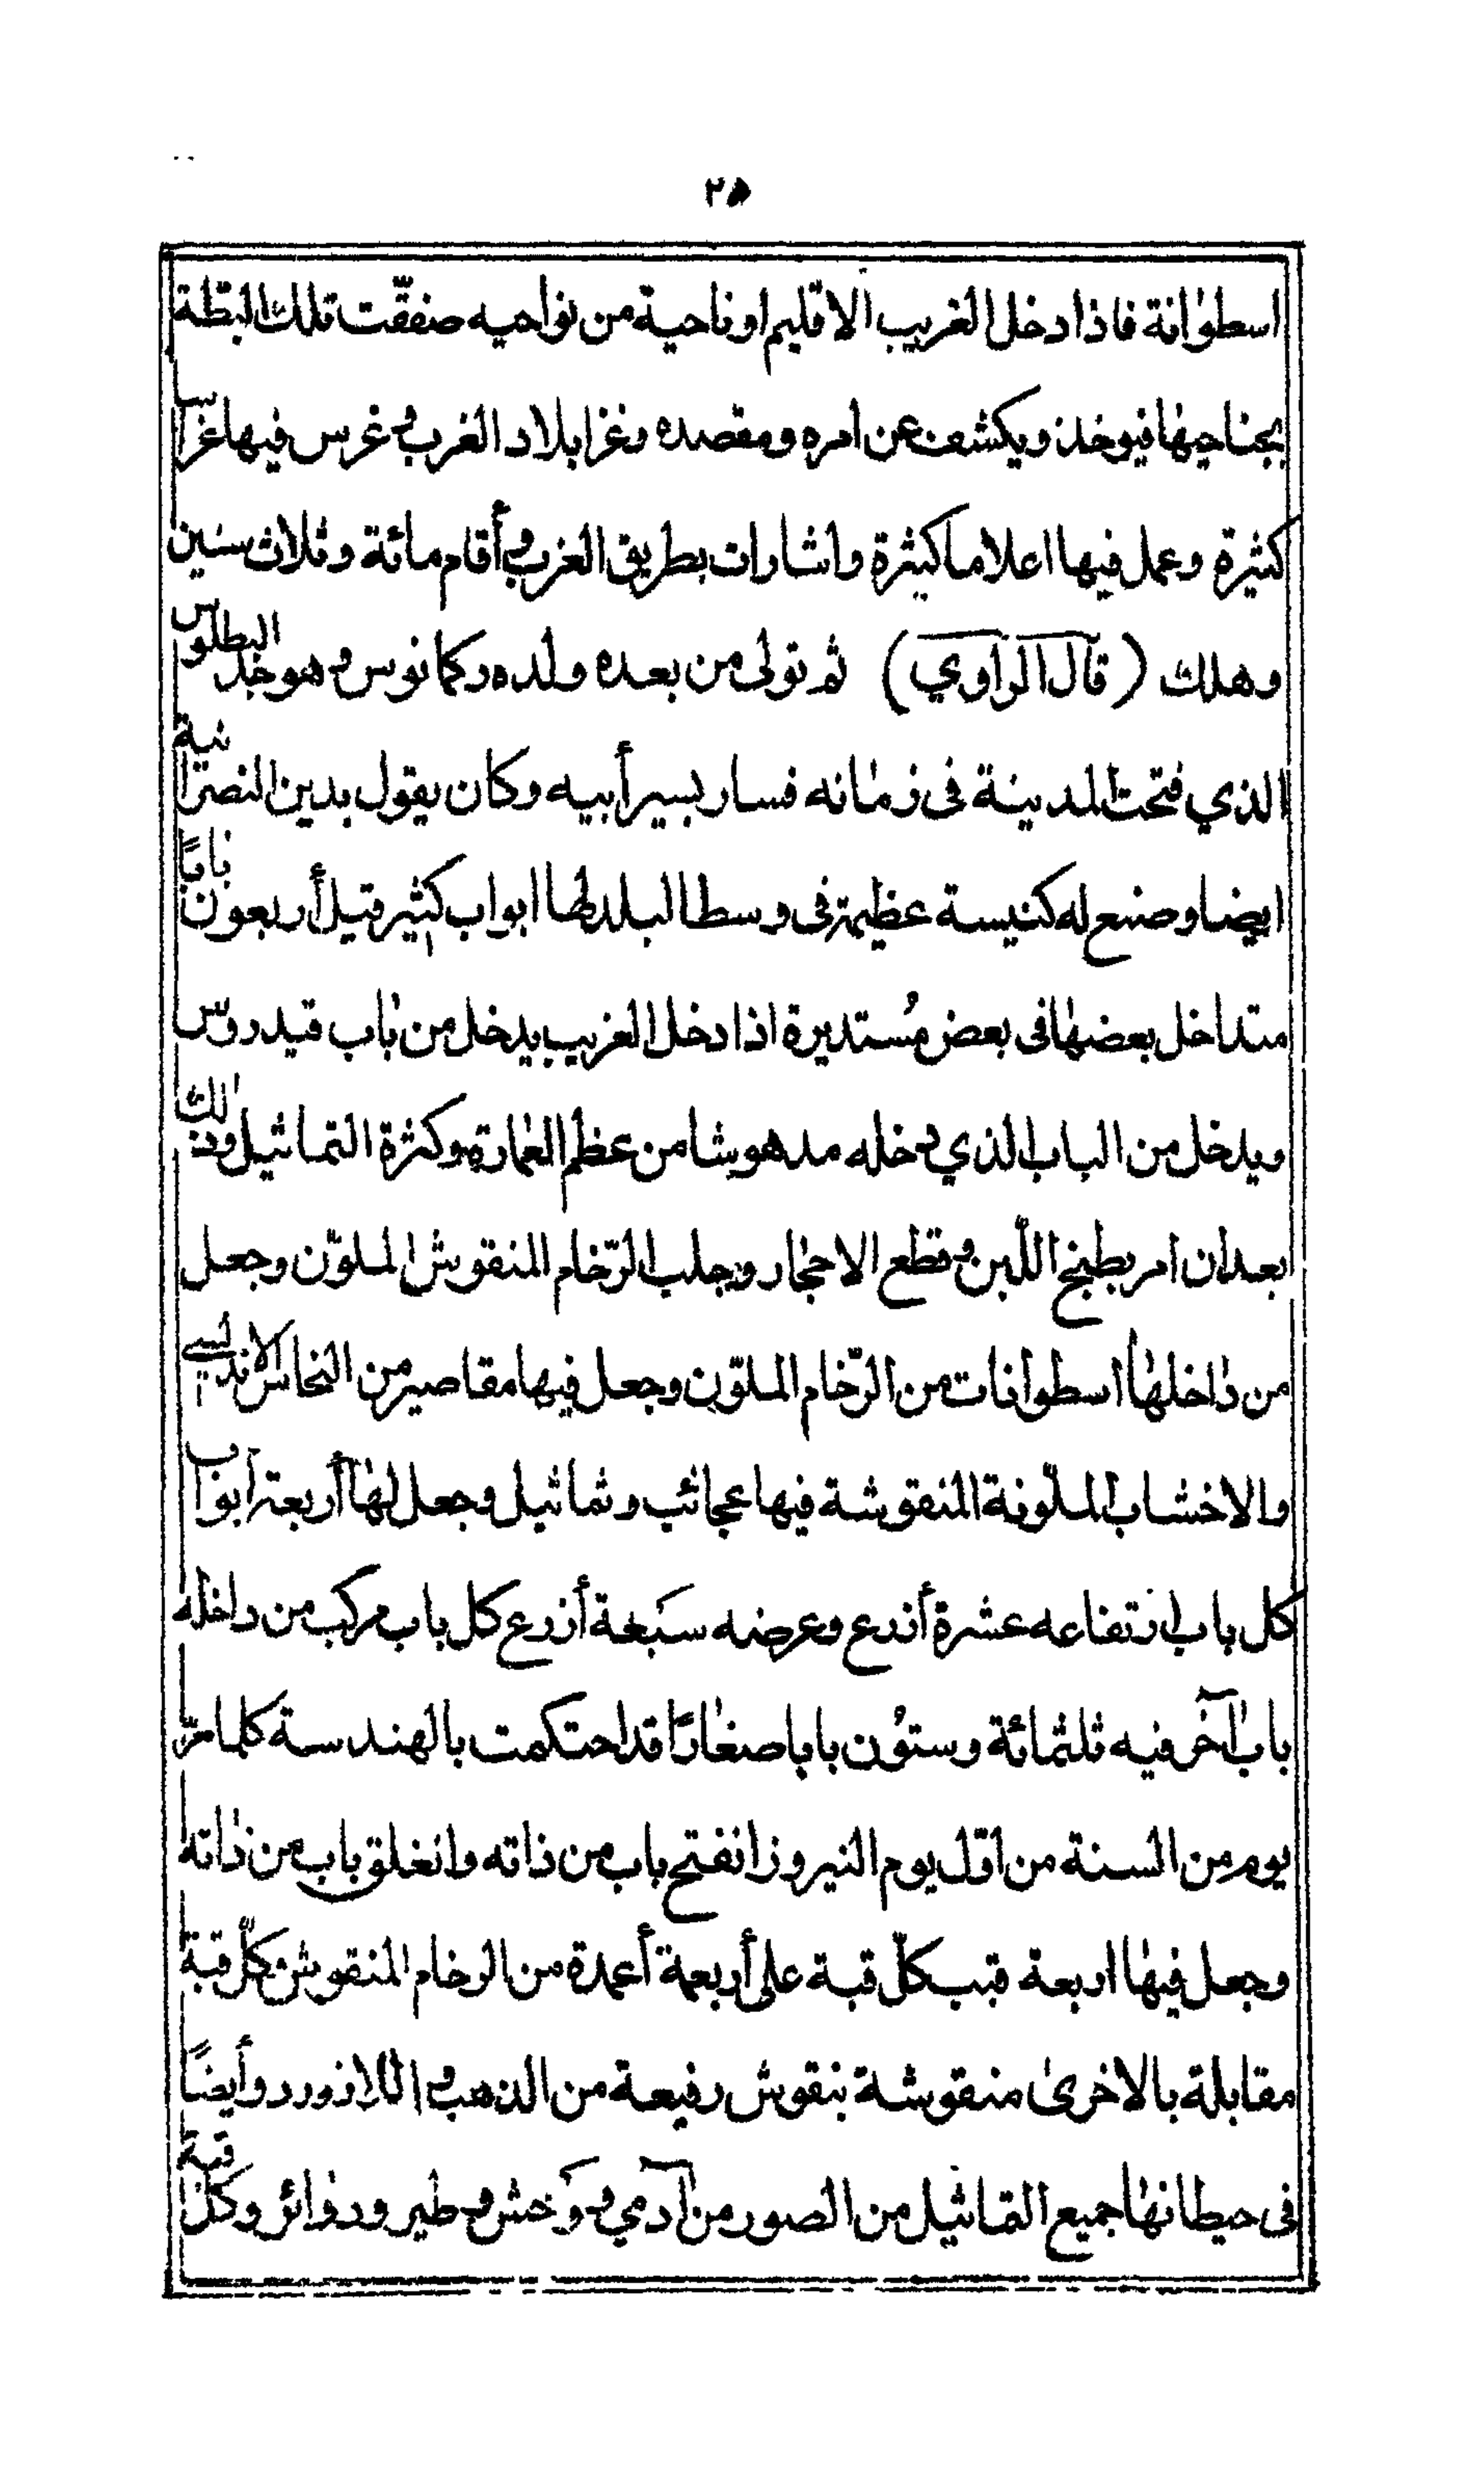 ٢٥
اسطوانة فاذا دخل الغريب الاقليم او ناحية من نواحيه صفقّت تلك البطّة
بجناحيها فيوخذ ويكشف عن امره ومقصده وغزا بلاد الغرب وغرس فيها غرسا
كثيرة وعمل فيها اعلاما كثيرة واشارات بطريق الغرب وأقام مائة وثلاث سنين
وهلك (قال الراوي) ثم تولى من بعده ولده ركمانوس وهو جد البطلوس
الذي فتحت المدينة فى زمانه فسار بسير أبيه وكان يقول بدين النصرانية
ايضا وصنع له كنيسة عظيمة فى وسط البلد لها ابواب كثير قيل أربعون بابًا
متداخل بعضها فى بعض مُستديرة اذا دخل الغريب يدخل من باب قيدروس
ويدخل من الباب الذي دخله مدهوشا من عظم العمارة وكثرة التماثيل وذلك
بعد ان امر بطبخ اللّبن وقطع الاحجار وجلب الرّخام المنقوش الملوّن وجعل
من داخلها اسطوانات من الرّخام الملوّن وجعل فيها مقاصير من النحاس الاندلسي
والاخشاب الملوّنة المنقوشة فيها عجائب وتماثيل وجعل لها أربعة أبواب
كل باب ارتفاعه عشرة أذرع وعرضه سَبعة أذرع كل باب مركب من داخله
باب آخر فيه ثلثمائة وستون بابا صغارًا قد احتكمت بالهندسة كلما مرّ
يوم من السنة من اوّل يوم النيروز انفتح باب من ذاته وانغلق باب من ذاته
وجعل فيها اربعة قبب كلّ قبة على أربعة أعمدة من الرخام المنقوش كلّ قبة
مقابلة بالاخرى منقوشة بنقوش رفيعة من الذهب واللازورد وأيضًا
فى حيطانها جميع التماثيل من الصور من آدمي ووَحش وطير ودوائر وكل قبة